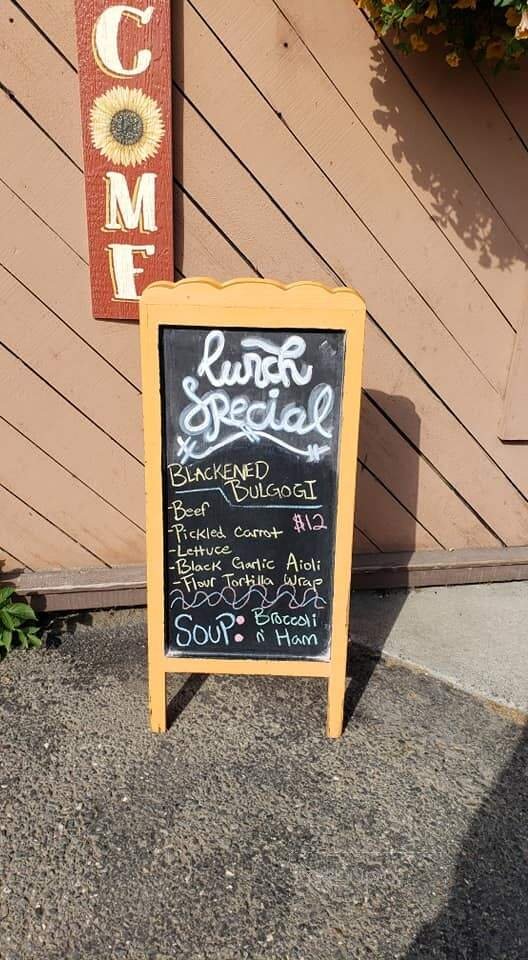 COME
Lunch
Special
BLACKENED
BULGOGI
-Beef
$12
-Pickled Carrot
-Lettuce
-Black Garlic Aioli
-Flour Tortilla Wrap
SOUP: Broccoli
n' Ham